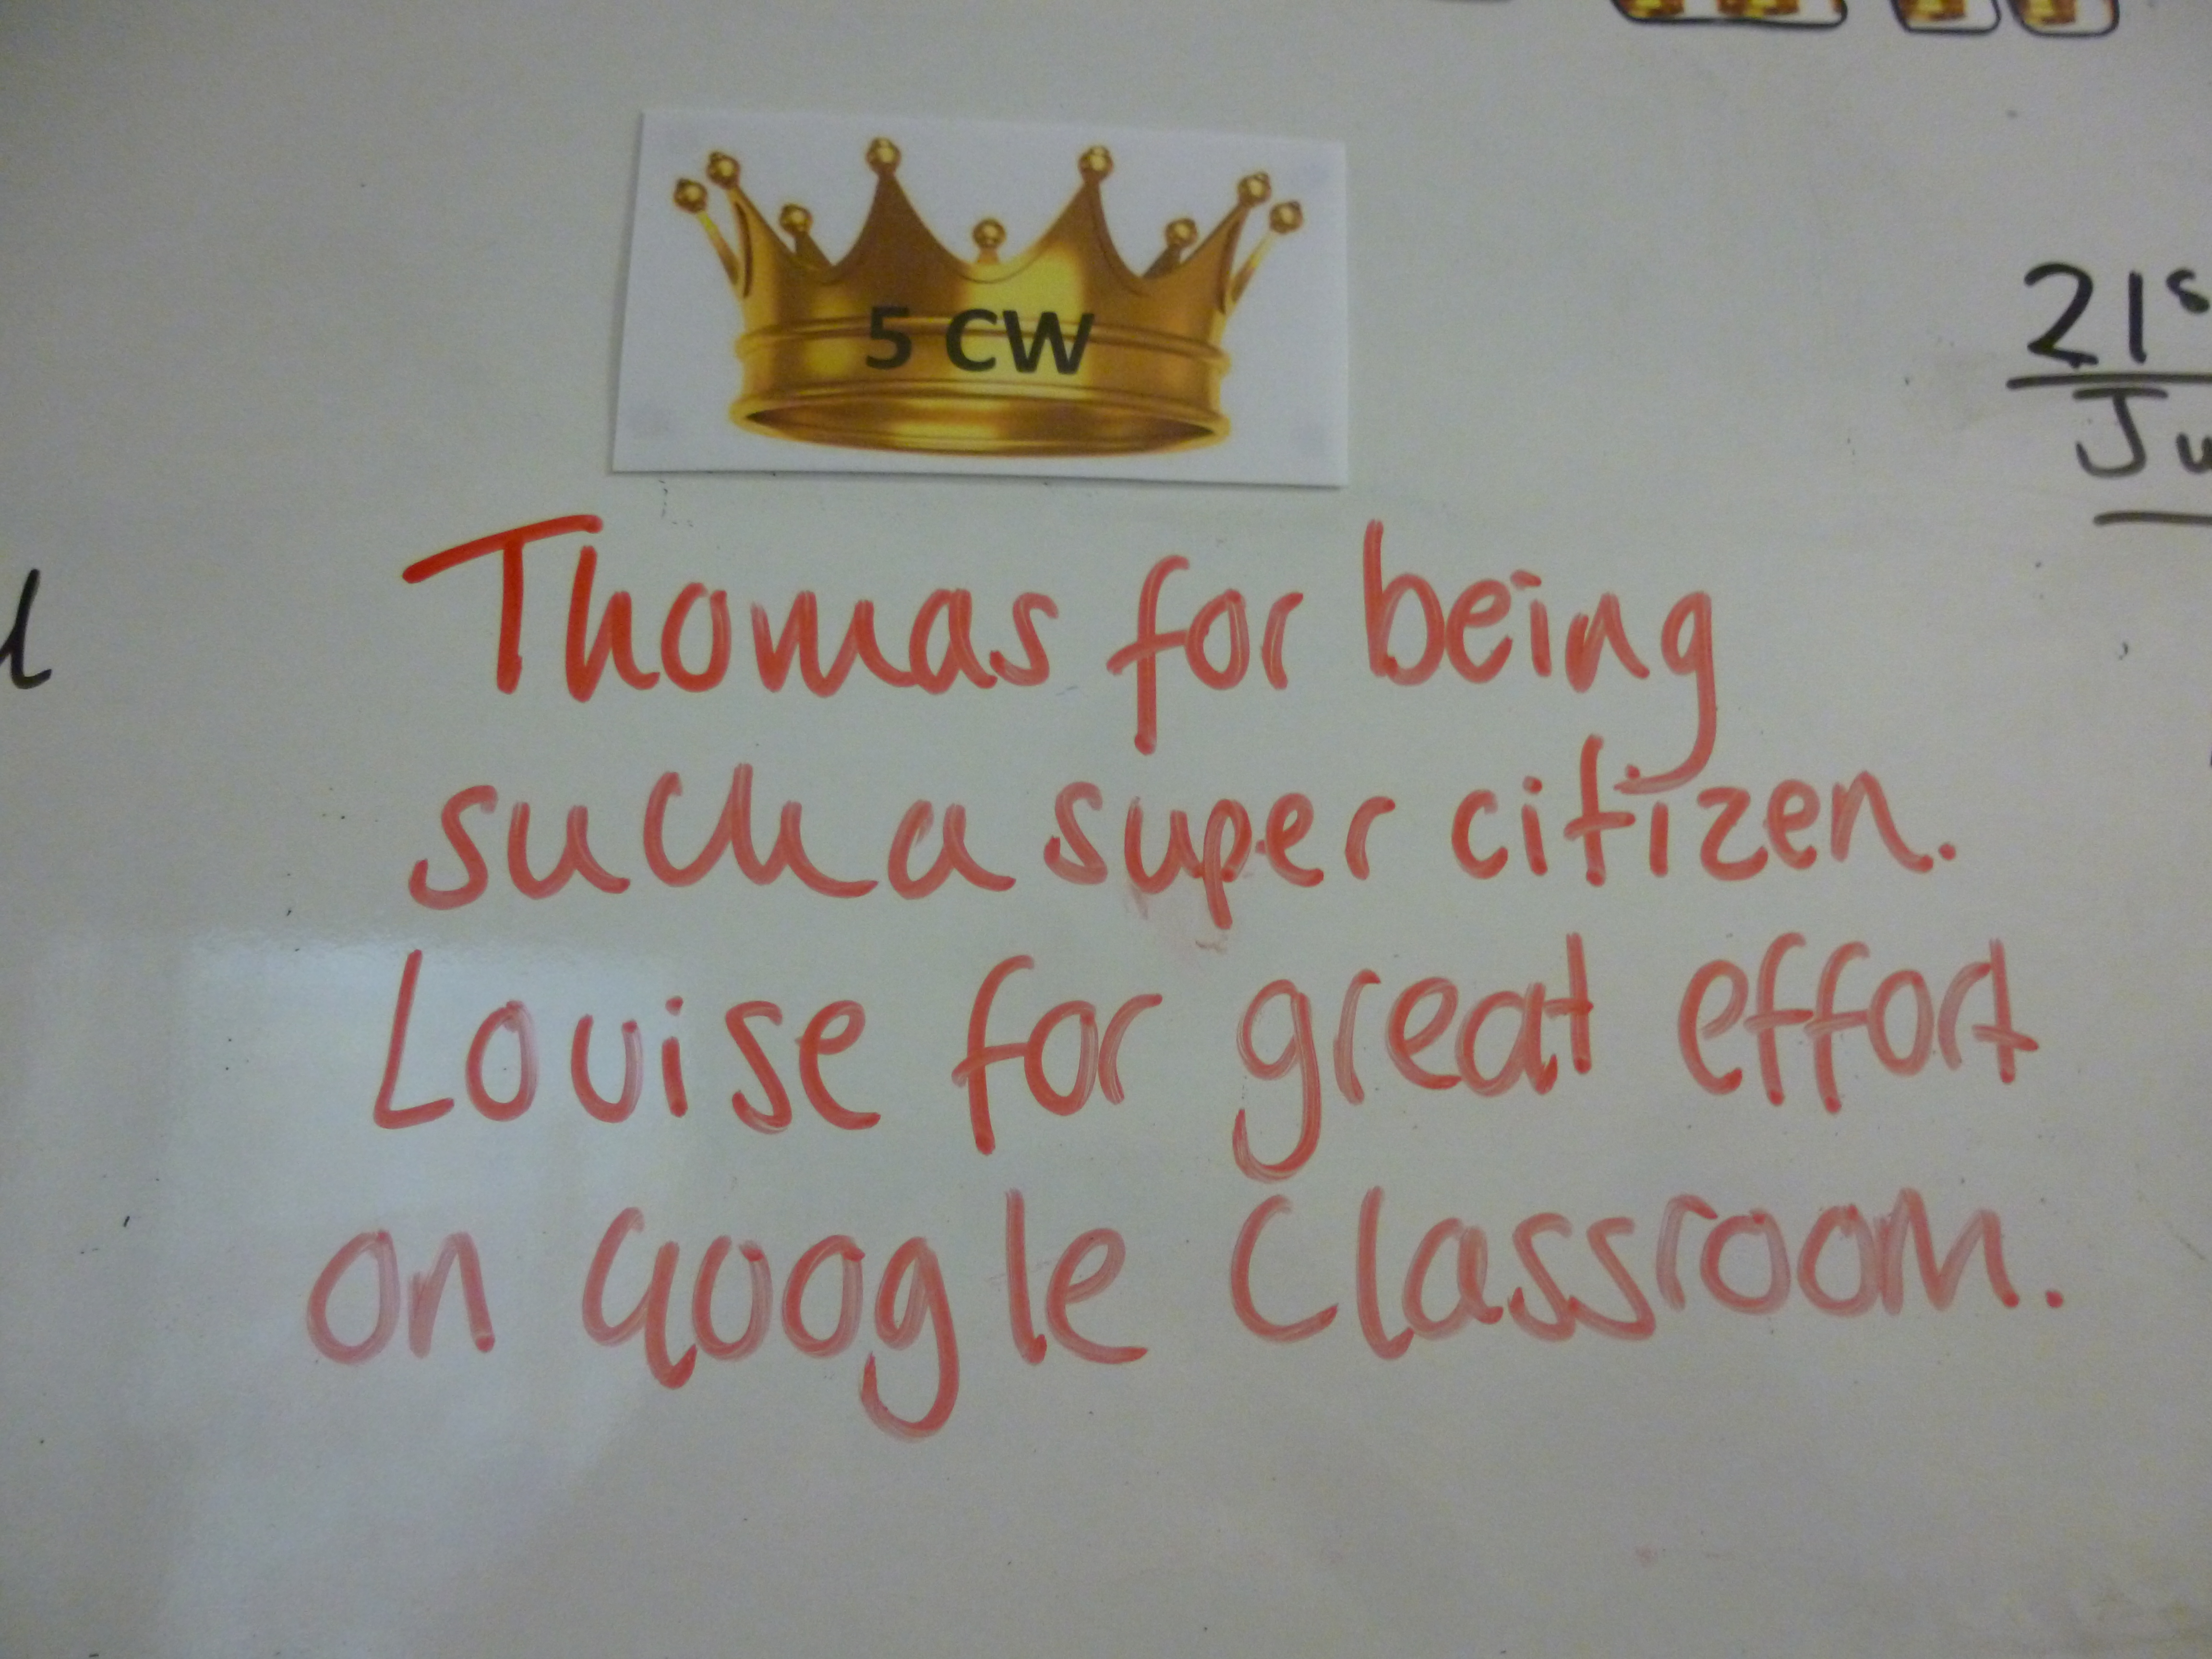 5 CW
21s
Ju
Thomas for being
such a super citizen.
Louise for great effort
on Google Classroom.